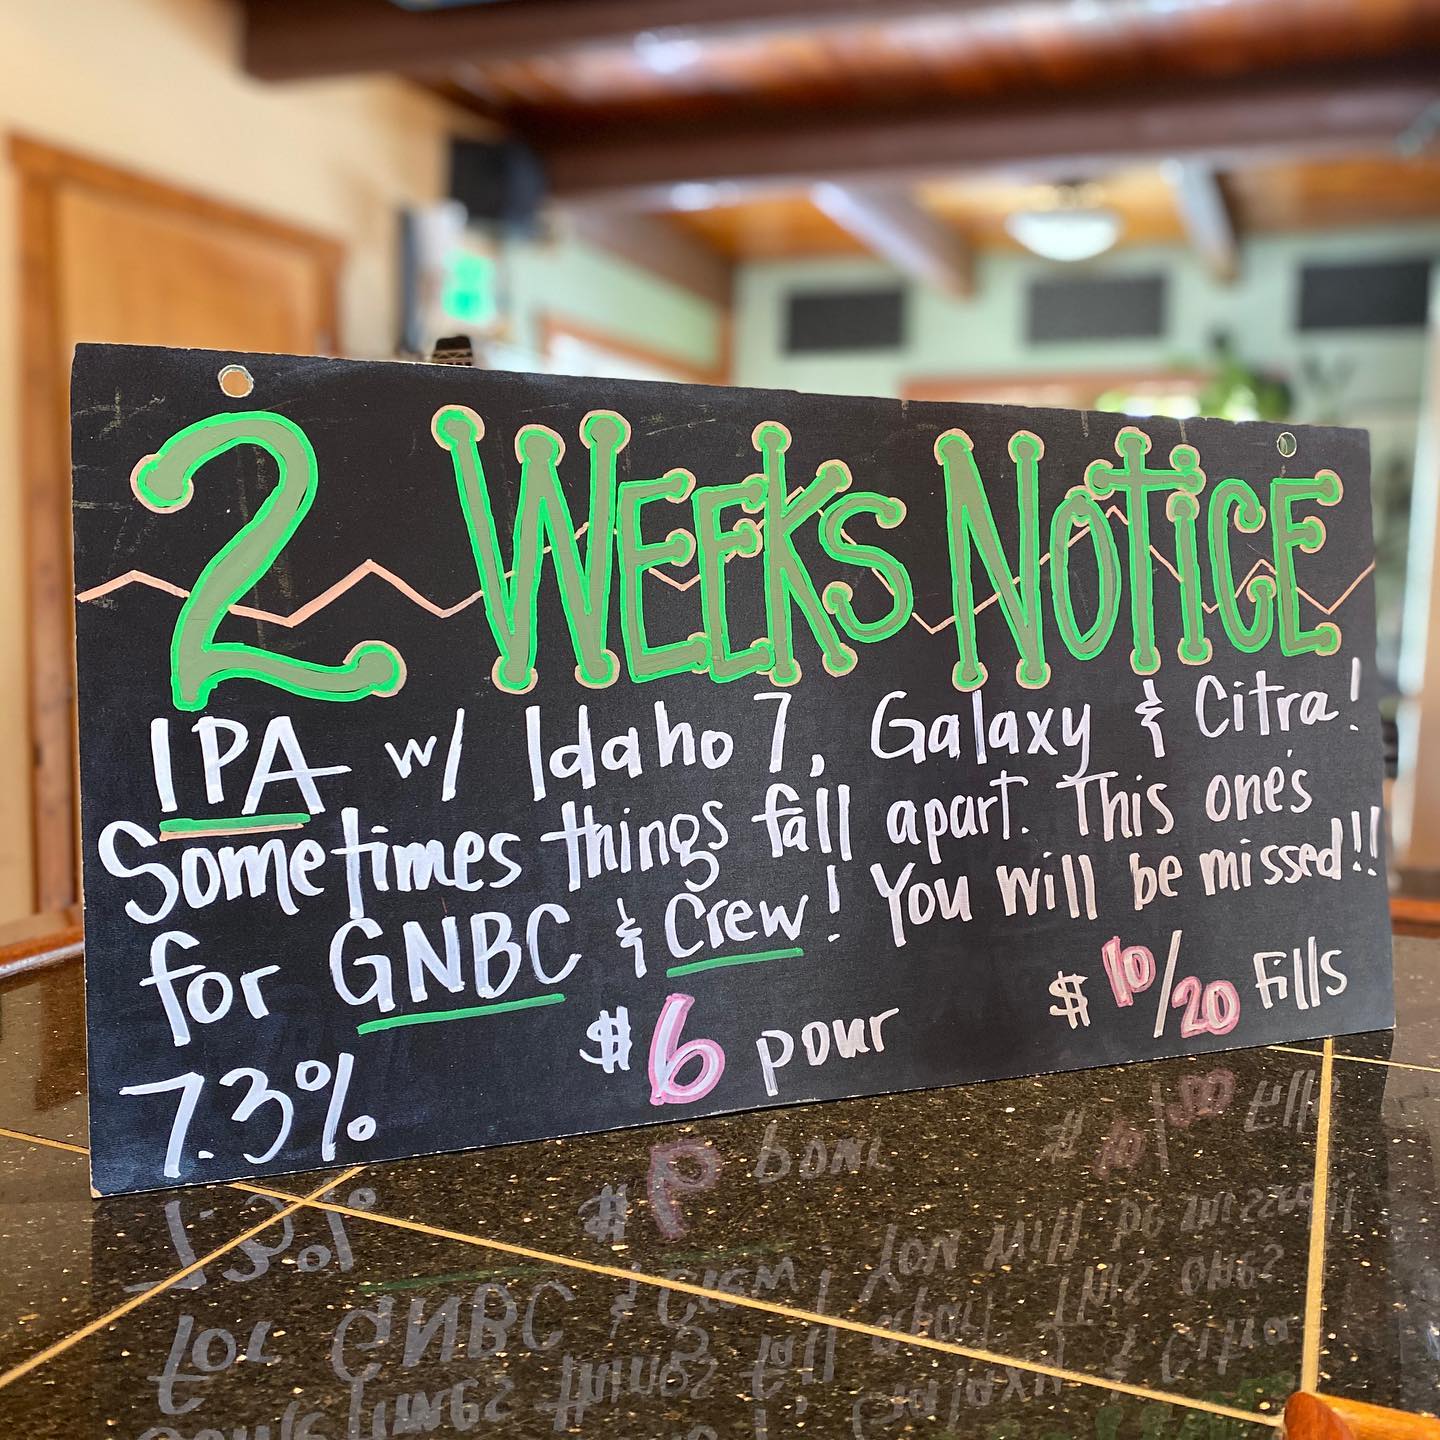 2 WEEKS NOTICE
IPA w/ Idaho 7, Galaxy & Citra!
Sometimes things fall apart. This one's
for GNBC & Crew! You will be missed!!
7.3% $6 pour $10/20 fills